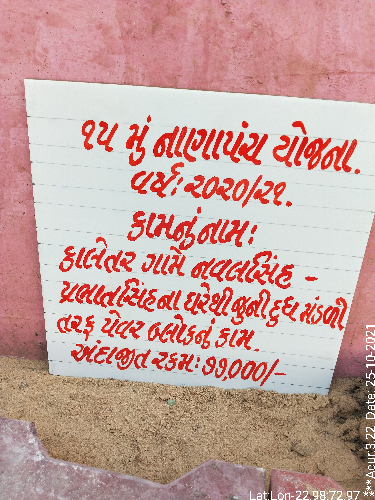 ૧૫ મું નાણાપંચ યોજના.
વર્ષ: ૨૦૨૦/૨૧.
કામનું નામ:
કાલેતર ગામે નવલસિંહ -
પ્રભાતસિંહના ઘરેથી જુની દુધ મંડળી
તરફ પેવર બ્લોકનું કામ.
અંદાજીત રકમ: ૭૭,૦૦૦/-
Lat Lon-22.98:72.97
***Acur:3.22 Date: 25-10-2021